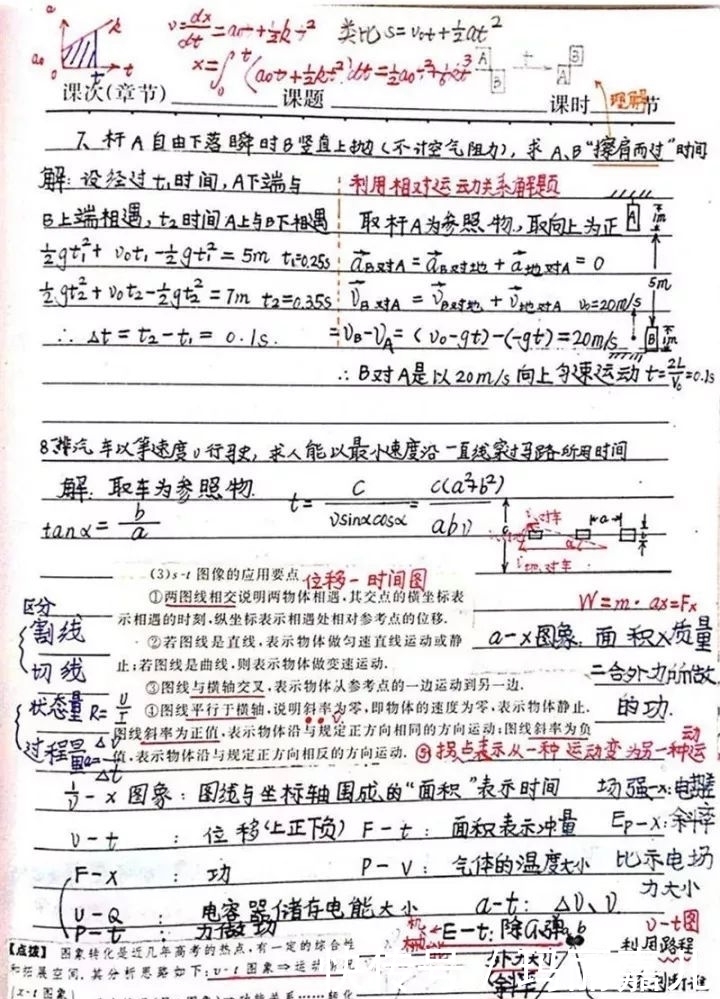 a
k
v=dx/dt=a₀t+½kt² 类比 s=v₀t+½at²
a₀
0 t t
x=∫₀ᵗ(a₀t+½kt²)dt=½a₀t²+⅙kt³
A B t B A
课次(章节) 课题 课时 理解 节
7、杆A自由下落瞬时B竖直上抛(不计空气阻力),求A、B"擦肩而过"时间
解:设经过t₁时间,A下端与 利用相对运动关系解题
B上端相遇,t₂时间A上与B下相遇 取杆A为参照物,取向上为正 A 1m
½gt₁²+v₀t₁-½gt₁²=5m t₁=0.25s a_B对A=a_B对地+a_地对A=0 5m
½gt₂²+v₀t₂-½gt₂²=7m t₂=0.35s v_B对A=v_B对地+v_地对A v₀=20m/s
∴Δt=t₂-t₁=0.1s. =v_B-v_A=(v₀-gt)-(-gt)=20m/s B 1m
∴B对A是以20m/s向上匀速运动 t=2L/v₀=0.1s
汽车以等速度v行驶,求人能以最小速度沿一直线穿过马路所用时间
解:取车为参照物. t=c/(vsinαcosα)=c(a²+b²)/(abv)
tanα=b/a
(3)s-t图像的应用要点 位移-时间图
①两图线相交说明两物体相遇,其交点的横坐标表
示相遇的时刻,纵坐标表示相遇处相对参考点的位移.
②若图线是直线,表示物体做匀速直线运动或静
止;若图线是曲线,则表示物体做变速运动.
③图线与横轴交叉,表示物体从参考点的一边运动到另一边.
④图线平行于横轴,说明斜率为零,即物体的速度为零,表示物体静止.
图线斜率为正值,表示物体沿与规定正方向相同的方向运动;图线斜率为负
值,表示物体沿与规定正方向相反的方向运动.
⑤拐点表示从一种运动变为另一种运动
区分
割线
切线
状态量 R=U/I
过程量 a=Δv/Δt
W=m·ax=Fx
a-x图象:面积×质量
=合外力所做
的功.
1/v-x图象:图线与坐标轴围成的"面积"表示时间 场强-x:电势差
v-t:位移(上正下负) F-t:面积表示冲量 Ep-x:斜率
F-x:功 P-V:气体的温度大小 比示电场
力大小
U-Q:电容器储存电能大小 a-t:Δv、v.
P-t:力做功 E-t:
v-t图
利用路程
【点拨】 图象转化是近几年高考的热点,有一定的综合性
和拓展空间,其分析思路如下:v-t图象⇒运动
(x-t图象)